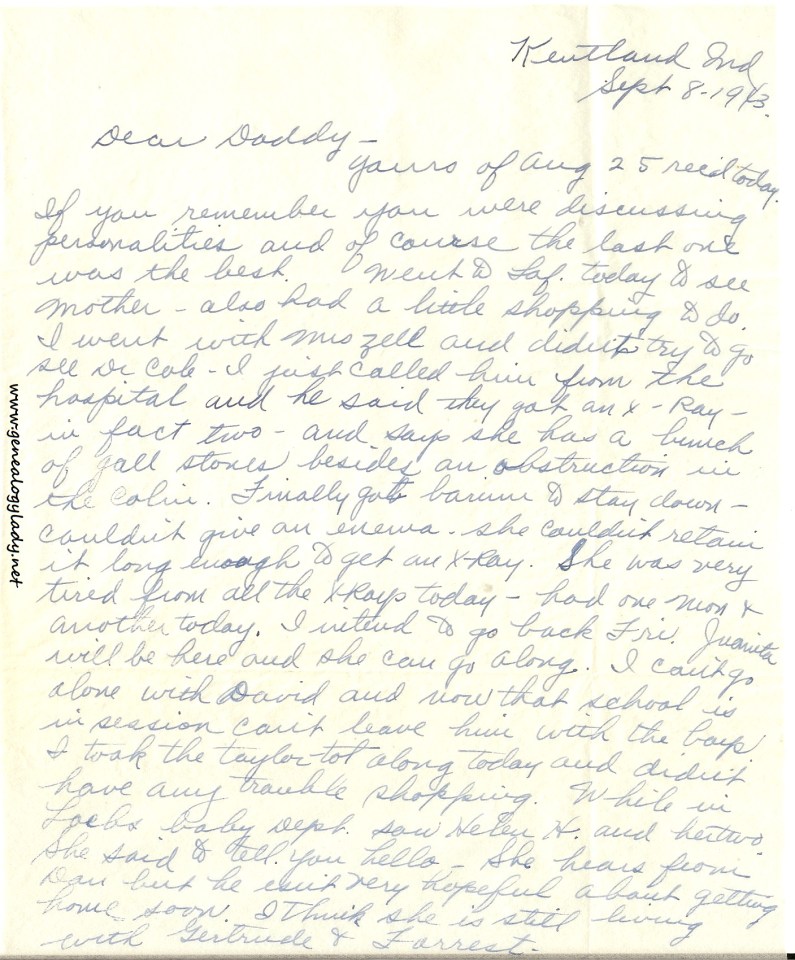 Kentland Ind
Sept 8-1943.
Dear Daddy-
Yours of Aug 25 rec'd today.
If you remember you were discussing
personalities and of course the last one
was the best. Went to Laf. today to see
Mother - also had a little shopping to do.
I went with Mrs Zell and didn't try to go
see Dr Cole - I just called him from the
hospital and he said they got an X-Ray -
in fact two - and says she has a bunch
of gall stones besides an obstruction in
the colin. Finally got barium to stay down -
couldn't give an enema - she couldn't retain
it long enough to get an X-Ray. She was very
tired from all the X-Rays today - had one Mon &
another today. I intend to go back Fri. Juanita
will be here and she can go along. I can't go
alone with David and now that school is
in session can't leave him with the boys
I took the taylor tot along today and didn't
have any trouble shopping. While in
Loebs baby dept. saw Helen H. and her two.
She said to tell you hello - She hears from
Dan but he isn't very hopeful about getting
home soon. I think she is still living
with Gertrude & Forrest.
www.genealogylady.net